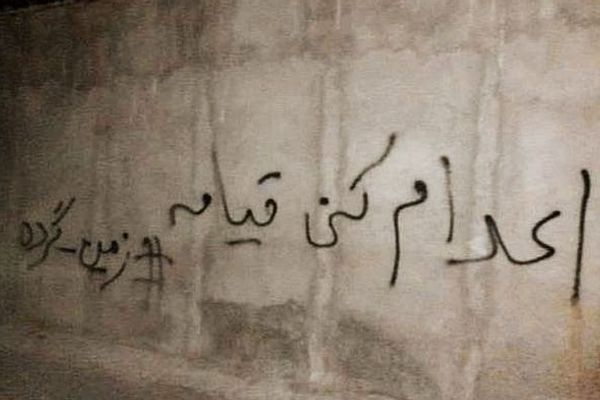 اعدام کنی قیامه #و_زمین_گرده